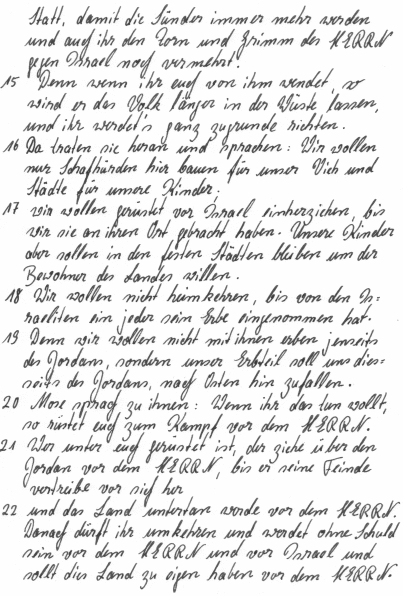 Statt, damit die Sünder immer mehr werden
und auch ihr den Zorn und Grimm des HERRN
gegen Israel noch vermehrt!
15 Denn wenn ihr euch von ihm wendet, so
wird er das Volk länger in der Wüste lassen,
und ihr werdet's ganz zugrunde richten.
16 Da traten sie heran und sprachen: Wir wollen
nur Schafhürden hier bauen für unser Vieh und
Städte für unsere Kinder;
17 wir wollen gerüstet vor Israel einherziehen, bis
wir sie an ihren Ort gebracht haben. Unsere Kinder
aber sollen in den festen Städten bleiben um der
Bewohner des Landes willen.
18 Wir wollen nicht heimkehren, bis von den Is=
raeliten ein jeder sein Erbe eingenommen hat.
19 Denn wir wollen nicht mit ihnen erben jenseits
des Jordans, sondern unser Erbteil soll uns dies=
seits des Jordans, nach Osten hin zufallen.
20 Mose sprach zu ihnen: Wenn ihr das tun wollt,
so rüstet euch zum Kampf vor dem HERRN.
21 Wer unter euch gerüstet ist, der ziehe über den
Jordan vor dem HERRN, bis er seine Feinde
vertreibe vor sich her
22 und das Land untertan werde vor dem HERRN.
Danach dürft ihr umkehren und werdet ohne Schuld
sein vor dem HERRN und vor Israel und
sollt dies Land zu eigen haben vor dem HERRN.